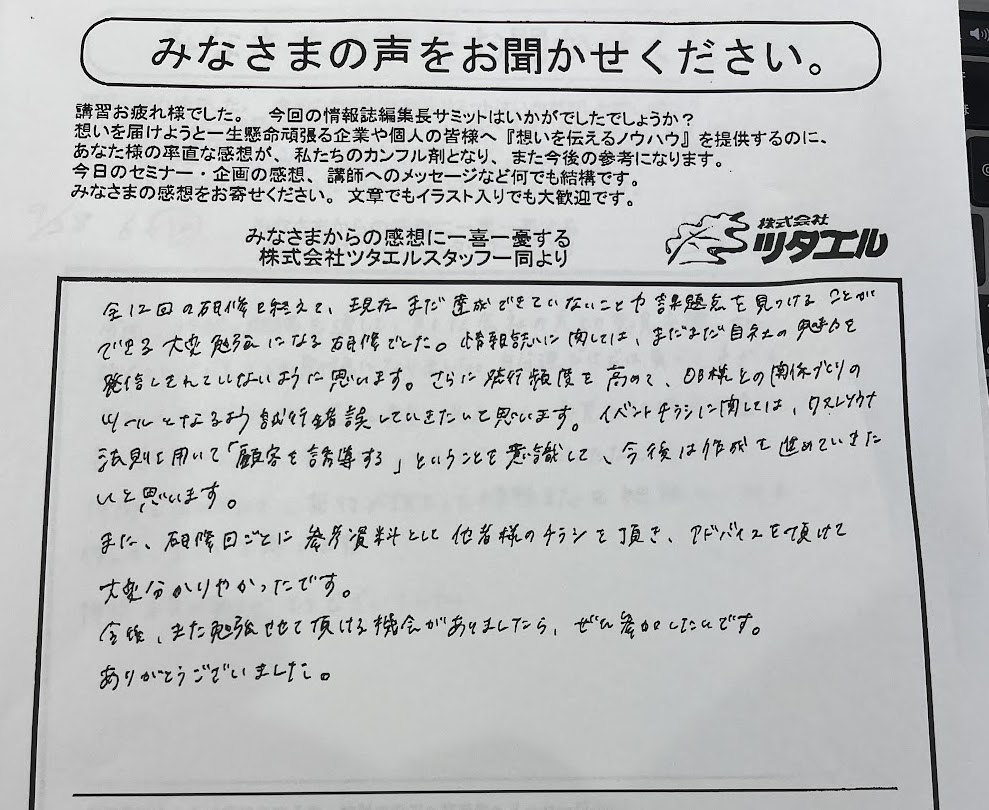 みなさまの声をお聞かせください。
講習お疲れ様でした。 今回の情報誌編集長サミットはいかがでしたでしょうか？
想いを届けようと一生懸命頑張る企業や個人の皆様へ『想いを伝えるノウハウ』を提供するのに、
あなた様の率直な感想が、私たちのカンフル剤となり、また今後の参考になります。
今日のセミナー・企画の感想、講師へのメッセージなど何でも結構です。
みなさまの感想をお寄せください。文章でもイラスト入りでも大歓迎です。
みなさまからの感想に一喜一憂する
株式会社ツタエルスタッフ一同より
株式会社
ツタエル
全12回の研修を終えて、現在まだ達成できていないことや課題点を見つけることが
できる大変勉強になる研修でした。情報誌に関しては、まだまだ自社の魅力を
発信しきれていないように思います。さらに発行頻度を高めて、OB様との関係づくりの
ツールとなるよう試行錯誤していきたいと思います。イベントチラシに関しては、
法則を用いて「顧客を誘導する」ということを意識して、今後は作成を進めていきた
いと思います。
また、研修回ごとに参考資料として他者様のチラシを頂き、アドバイスを頂けて
大変分かりやかったです。
今後、また勉強させて頂ける機会がありましたら、ぜひ参加したいです。
ありがとうございました。